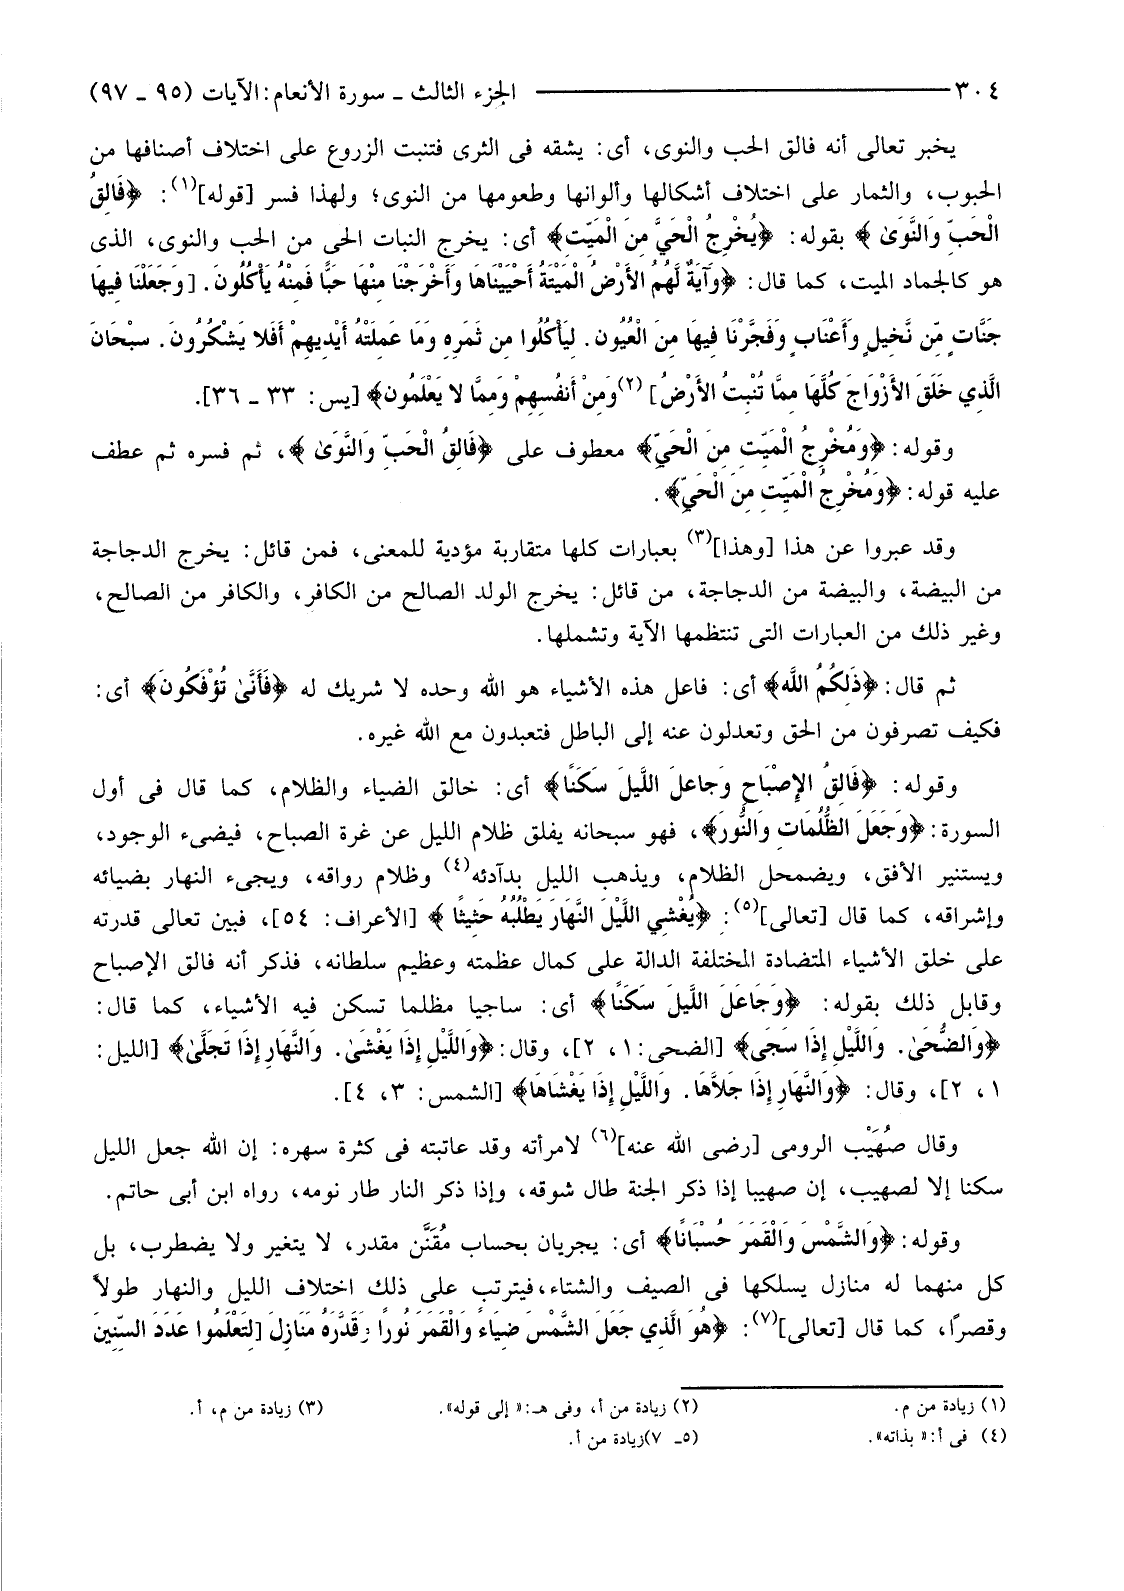 ٣٠٤ ــــــــــــــــ الجزء الثالث ـ سورة الأنعام: الآيات (٩٥ ـ ٩٧)
يخبر تعالى أنه فالق الحب والنوى، أى: يشقه فى الثرى فتنبت الزروع على اختلاف أصنافها من
الحبوب، والثمار على اختلاف أشكالها وألوانها وطعومها من النوى؛ ولهذا فسر [قوله](١): ﴿فَالِقُ
الْحَبِّ وَالنَّوَىٰ ﴾ بقوله: ﴿يُخْرِجُ الْحَيَّ مِنَ الْمَيِّتِ﴾ أى: يخرج النبات الحى من الحب والنوى، الذى
هو كالجماد الميت، كما قال: ﴿وَآيَةٌ لَّهُمُ الأَرْضُ الْمَيْتَةُ أَحْيَيْنَاهَا وَأَخْرَجْنَا مِنْهَا حَبًّا فَمِنْهُ يَأْكُلُونَ. [وَجَعَلْنَا فِيهَا
جَنَّاتٍ مِّن نَّخِيلٍ وَأَعْنَابٍ وَفَجَّرْنَا فِيهَا مِنَ الْعُيُون. لِيَأْكُلُوا مِن ثَمَرِهِ وَمَا عَمِلَتْهُ أَيْدِيهِمْ أَفَلا يَشْكُرُونَ. سبْحَانَ
الَّذِي خَلَقَ الأَزْوَاجَ كُلَّهَا مِمَّا تُنْبِتُ الأَرْضُ] (٢)وَمِنْ أَنفُسِهِمْ وَمِمَّا لا يَعْلَمُون﴾ [يس: ٣٣ ـ ٣٦].
وقوله: ﴿وَمُخْرِجُ الْمَيِّتِ مِنَ الْحَيِّ﴾ معطوف على ﴿فَالِقُ الْحَبِّ وَالنَّوَىٰ ﴾، ثم فسره ثم عطف
عليه قوله: ﴿وَمُخْرِجُ الْمَيِّتِ مِنَ الْحَيِّ﴾.
وقد عبروا عن هذا [وهذا](٣) بعبارات كلها متقاربة مؤدية للمعنى، فمن قائل: يخرج الدجاجة
من البيضة، والبيضة من الدجاجة، من قائل: يخرج الولد الصالح من الكافر، والكافر من الصالح،
وغير ذلك من العبارات التى تنتظمها الآية وتشملها.
ثم قال: ﴿ذَلِكُمُ اللَّه﴾ أى: فاعل هذه الأشياء هو الله وحده لا شريك له ﴿فَأَنَّىٰ تُؤْفَكُونَ﴾ أى:
فكيف تصرفون من الحق وتعدلون عنه إلى الباطل فتعبدون مع الله غيره.
وقوله: ﴿فَالِقُ الإِصْبَاحِ وَجَاعلَ اللَّيلَ سَكَنًا﴾ أى: خالق الضياء والظلام، كما قال فى أول
السورة: ﴿وَجَعَلَ الظُّلُمَاتِ وَالنُّورَ﴾، فهو سبحانه يفلق ظلام الليل عن غرة الصباح، فيضىء الوجود،
ويستنير الأفق، ويضمحل الظلام، ويذهب الليل بدآدئه(٤) وظلام رواقه، ويجىء النهار بضيائه
وإشراقه، كما قال [تعالى](٥): ﴿يُغْشِي اللَّيْلَ النَّهَارَ يَطْلُبُهُ حَثِيثًا ﴾ [الأعراف: ٥٤]، فبين تعالى قدرته
على خلق الأشياء المتضادة المختلفة الدالة على كمال عظمته وعظيم سلطانه، فذكر أنه فالق الإصباح
وقابل ذلك بقوله: ﴿وَجَاعَلَ اللَّيلَ سَكَنًا﴾ أى: ساجيا مظلما تسكن فيه الأشياء، كما قال:
﴿وَالضُّحَىٰ. وَاللَّيْلِ إِذَا سَجَى﴾ [الضحى: ١، ٢]، وقال: ﴿وَاللَّيْلِ إِذَا يَغْشَىٰ. وَالنَّهَارِ إِذَا تَجَلَّىٰ﴾ [الليل:
١، ٢]، وقال: ﴿وَالنَّهَارِ إِذَا جَلاَّهَا. وَاللَّيْلِ إِذَا يَغْشَاهَا﴾ [الشمس: ٣، ٤].
وقال صُهَيْب الرومى [رضى الله عنه](٦) لامرأته وقد عاتبته فى كثرة سهره: إن الله جعل الليل
سكنا إلا لصهيب، إن صهيبا إذا ذكر الجنة طال شوقه، وإذا ذكر النار طار نومه، رواه ابن أبى حاتم.
وقوله: ﴿وَالشَّمْسَ وَالْقَمَرَ حُسْبَانًا﴾ أى: يجريان بحساب مُقَنَّن مقدر، لا يتغير ولا يضطرب، بل
كل منهما له منازل يسلكها فى الصيف والشتاء، فيترتب على ذلك اختلاف الليل والنهار طولاً
وقصرًا، كما قال [تعالى](٧): ﴿هُوَ الَّذِي جَعَلَ الشَّمْسَ ضِيَاءً وَالْقَمَرَ نُورًا وَقَدَّرَهُ مَنَازِلَ [لِتَعْلَمُوا عَدَدَ السِّنِينَ
(١) زيادة من م. (٢) زيادة من أ، وفى هـ: « إلى قوله». (٣) زيادة من م، أ.
(٤) فى أ: « بذاته». (٥ـ ٧)زيادة من أ.